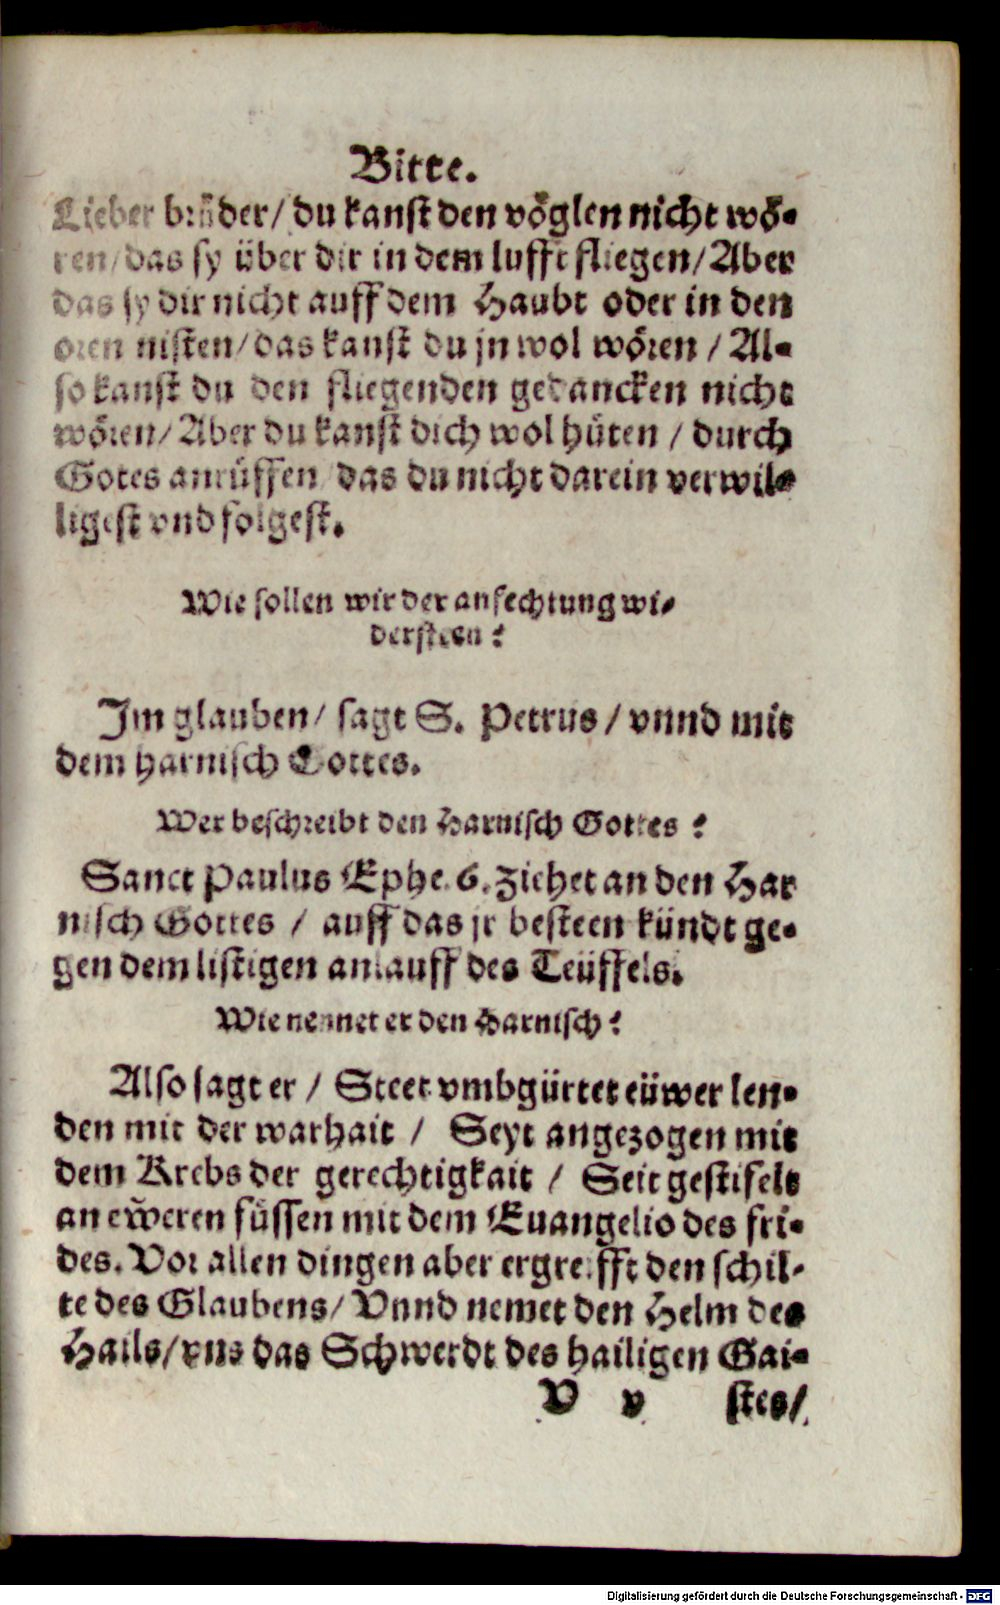 Bitte.
Lieber brůder/ du kanst den vöglen nicht wö-
ren/ das sy über dir in dem lufft fliegen/ Aber
das sy dir nicht auff dem Haubt oder in den
oren nisten/ das kanst du jn wol wören / Al-
so kanst du den fliegenden gedancken nicht
wören/ Aber du kanst dich wol hüten / durch
Gotes anrüffen/ das du nicht darein verwil-
ligest vnd folgest.
Wie sollen wir der anfechtung wi-
dersteen?
Im glauben/ sagt S. Petrus / vnnd mit
dem harnisch Gottes.
Wer beschreibt den Harnisch Gottes ?
Sanct Paulus Ephe. 6. Ziehet an den Har
nisch Gottes / auff das jr besteen kündt ge-
gen dem listigen anlauff des Teüffels.
Wie nennet er den Harnisch?
Also sagt er / Steet vmbgürtet eüwer len-
den mit der warhait / Seyt angezogen mit
dem Krebs der gerechtigkait / Seit gestifelt
an eẅeren füssen mit dem Euangelio des fri-
des. Vor allen dingen aber ergreifft den schil-
te des Glaubens/ Vnnd nemet den Helm des
Hails/ vns das Schwerdt des hailigen Gai-
V v stes/
Digitalisierung gefördert durch die Deutsche Forschungsgemeinschaft - DFG